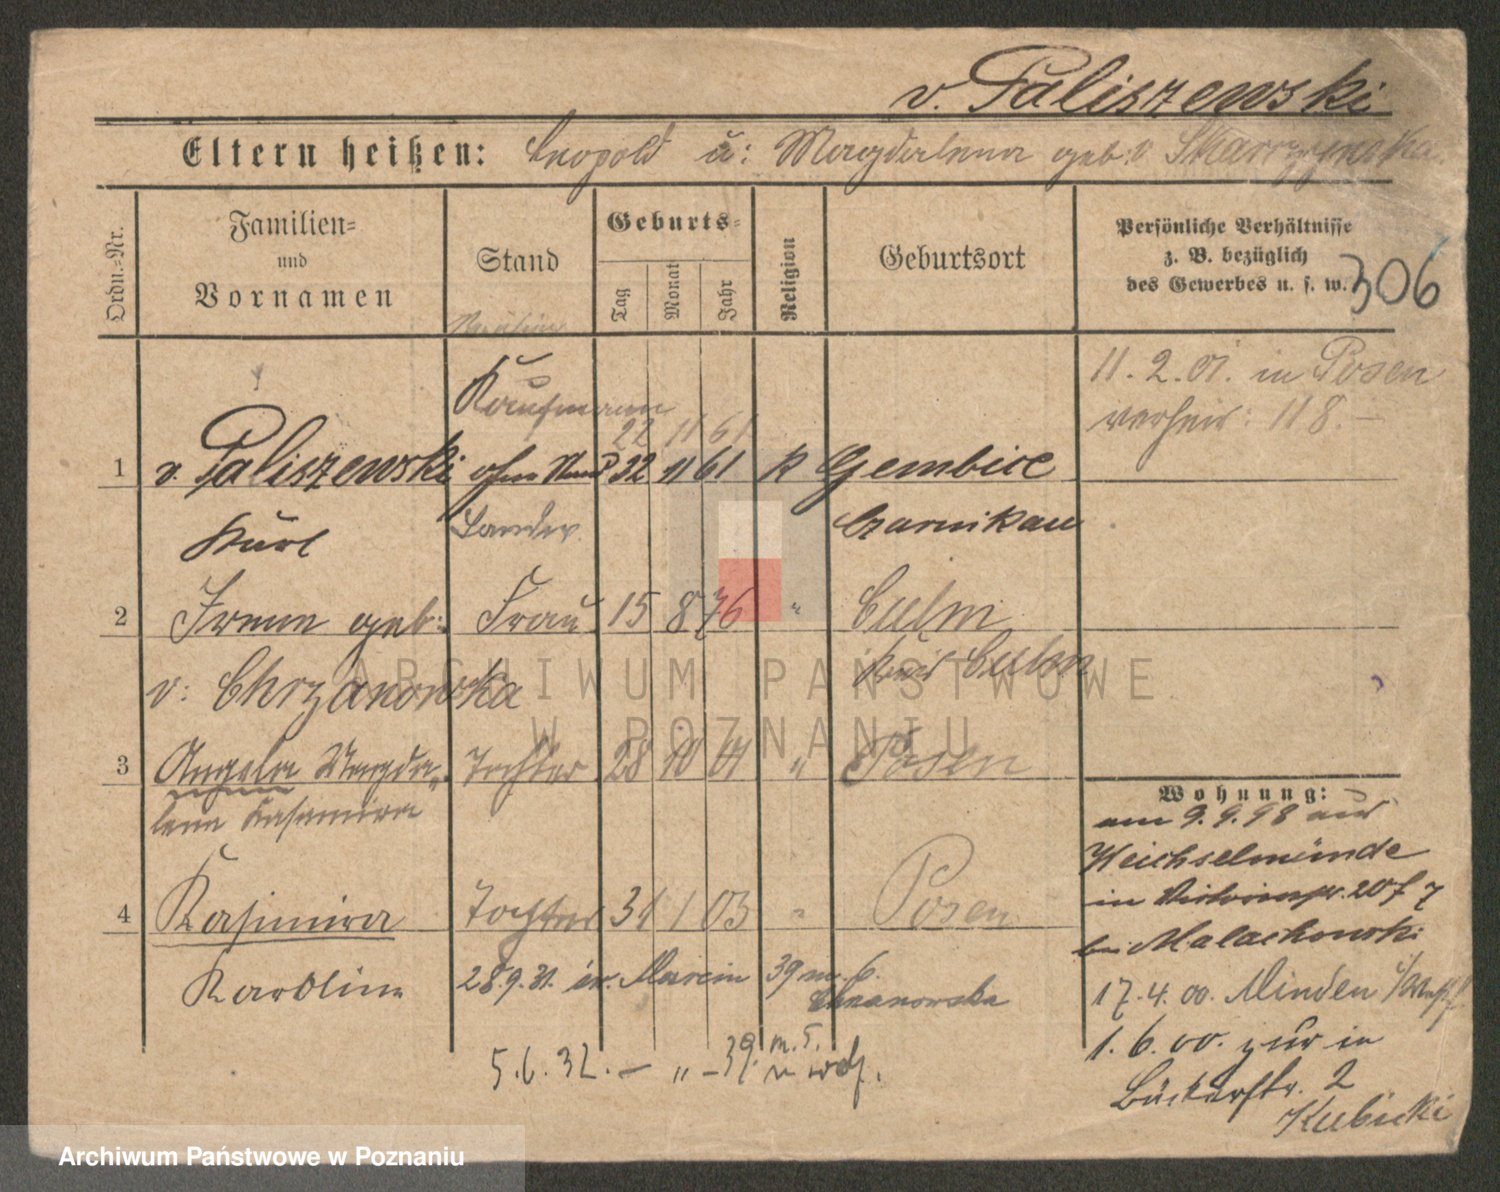 v. Paliszewski
Eltern heißen: Leopold u: Magdalena geb: v Skarzynska
Ordn.-Nr.
Familien- und Vornamen
Stand
Geburts-
Tag
Monat
Jahr
Religion
Geburtsort
Persönliche Verhältnisse
z. B. bezüglich
des Gewerbes u. s. w.
306
11. 2. 01. in Posen
verheir: 118. –
Kaufmann
22 11 61
1 v. Paliszewski ohne Stand 32 11 61 k Gembice
Kurl Czarnikau
2 Irene geb: Frau 15 8 76 " Culm
v: Chrzanowska Kreis Culm
3 Angela Magda- Tochter 28 10 01 " Posen
lena Kasimira
4 Kasimira Tochter 31 1 03 " Posen
Karoline
28.9.31. św. Marcin 39 m. 6.
Chrzanowska
5.6.32. – " – 39. m. 5.
Wohnung:
am 9.9.98 aus
Weichselmünde
in 20
bei Malachowski
17.4.00. Minden i/Westf
1.6.00. zur in
Bäckerstr. 2
Kubicki
ARCHIWUM PAŃSTWOWE
W POZNANIU
Archiwum Państwowe w Poznaniu